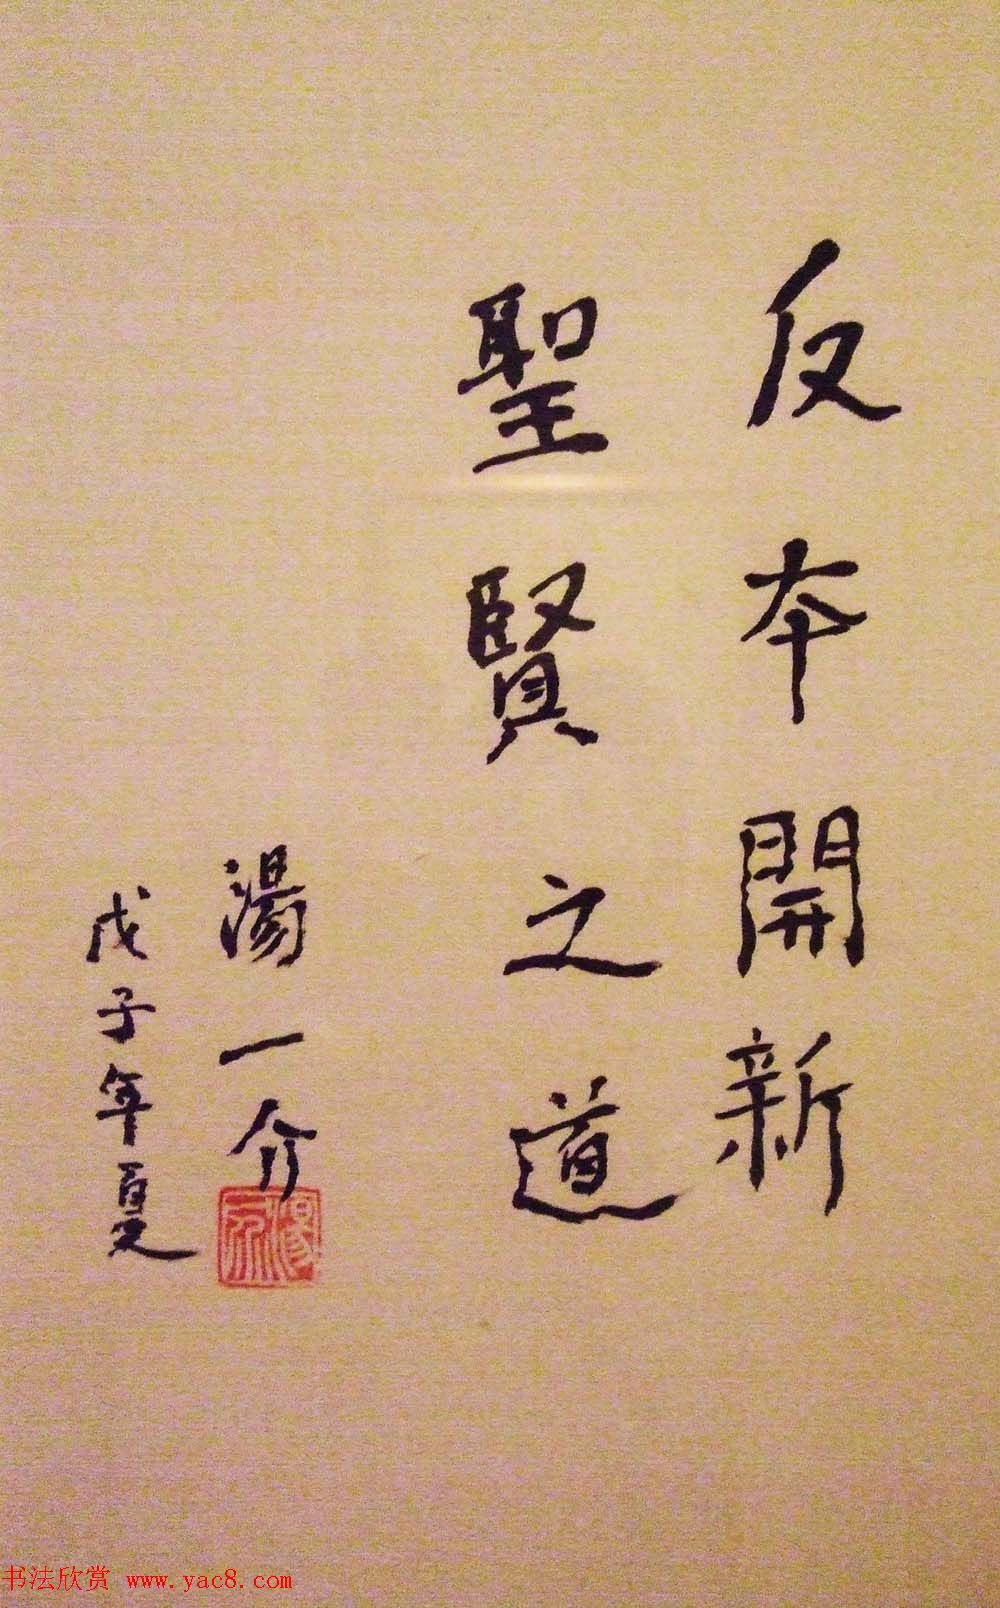 反本開新
聖賢之道
湯一介
戊子年夏
湯一介
书法欣赏 www.yac8.com